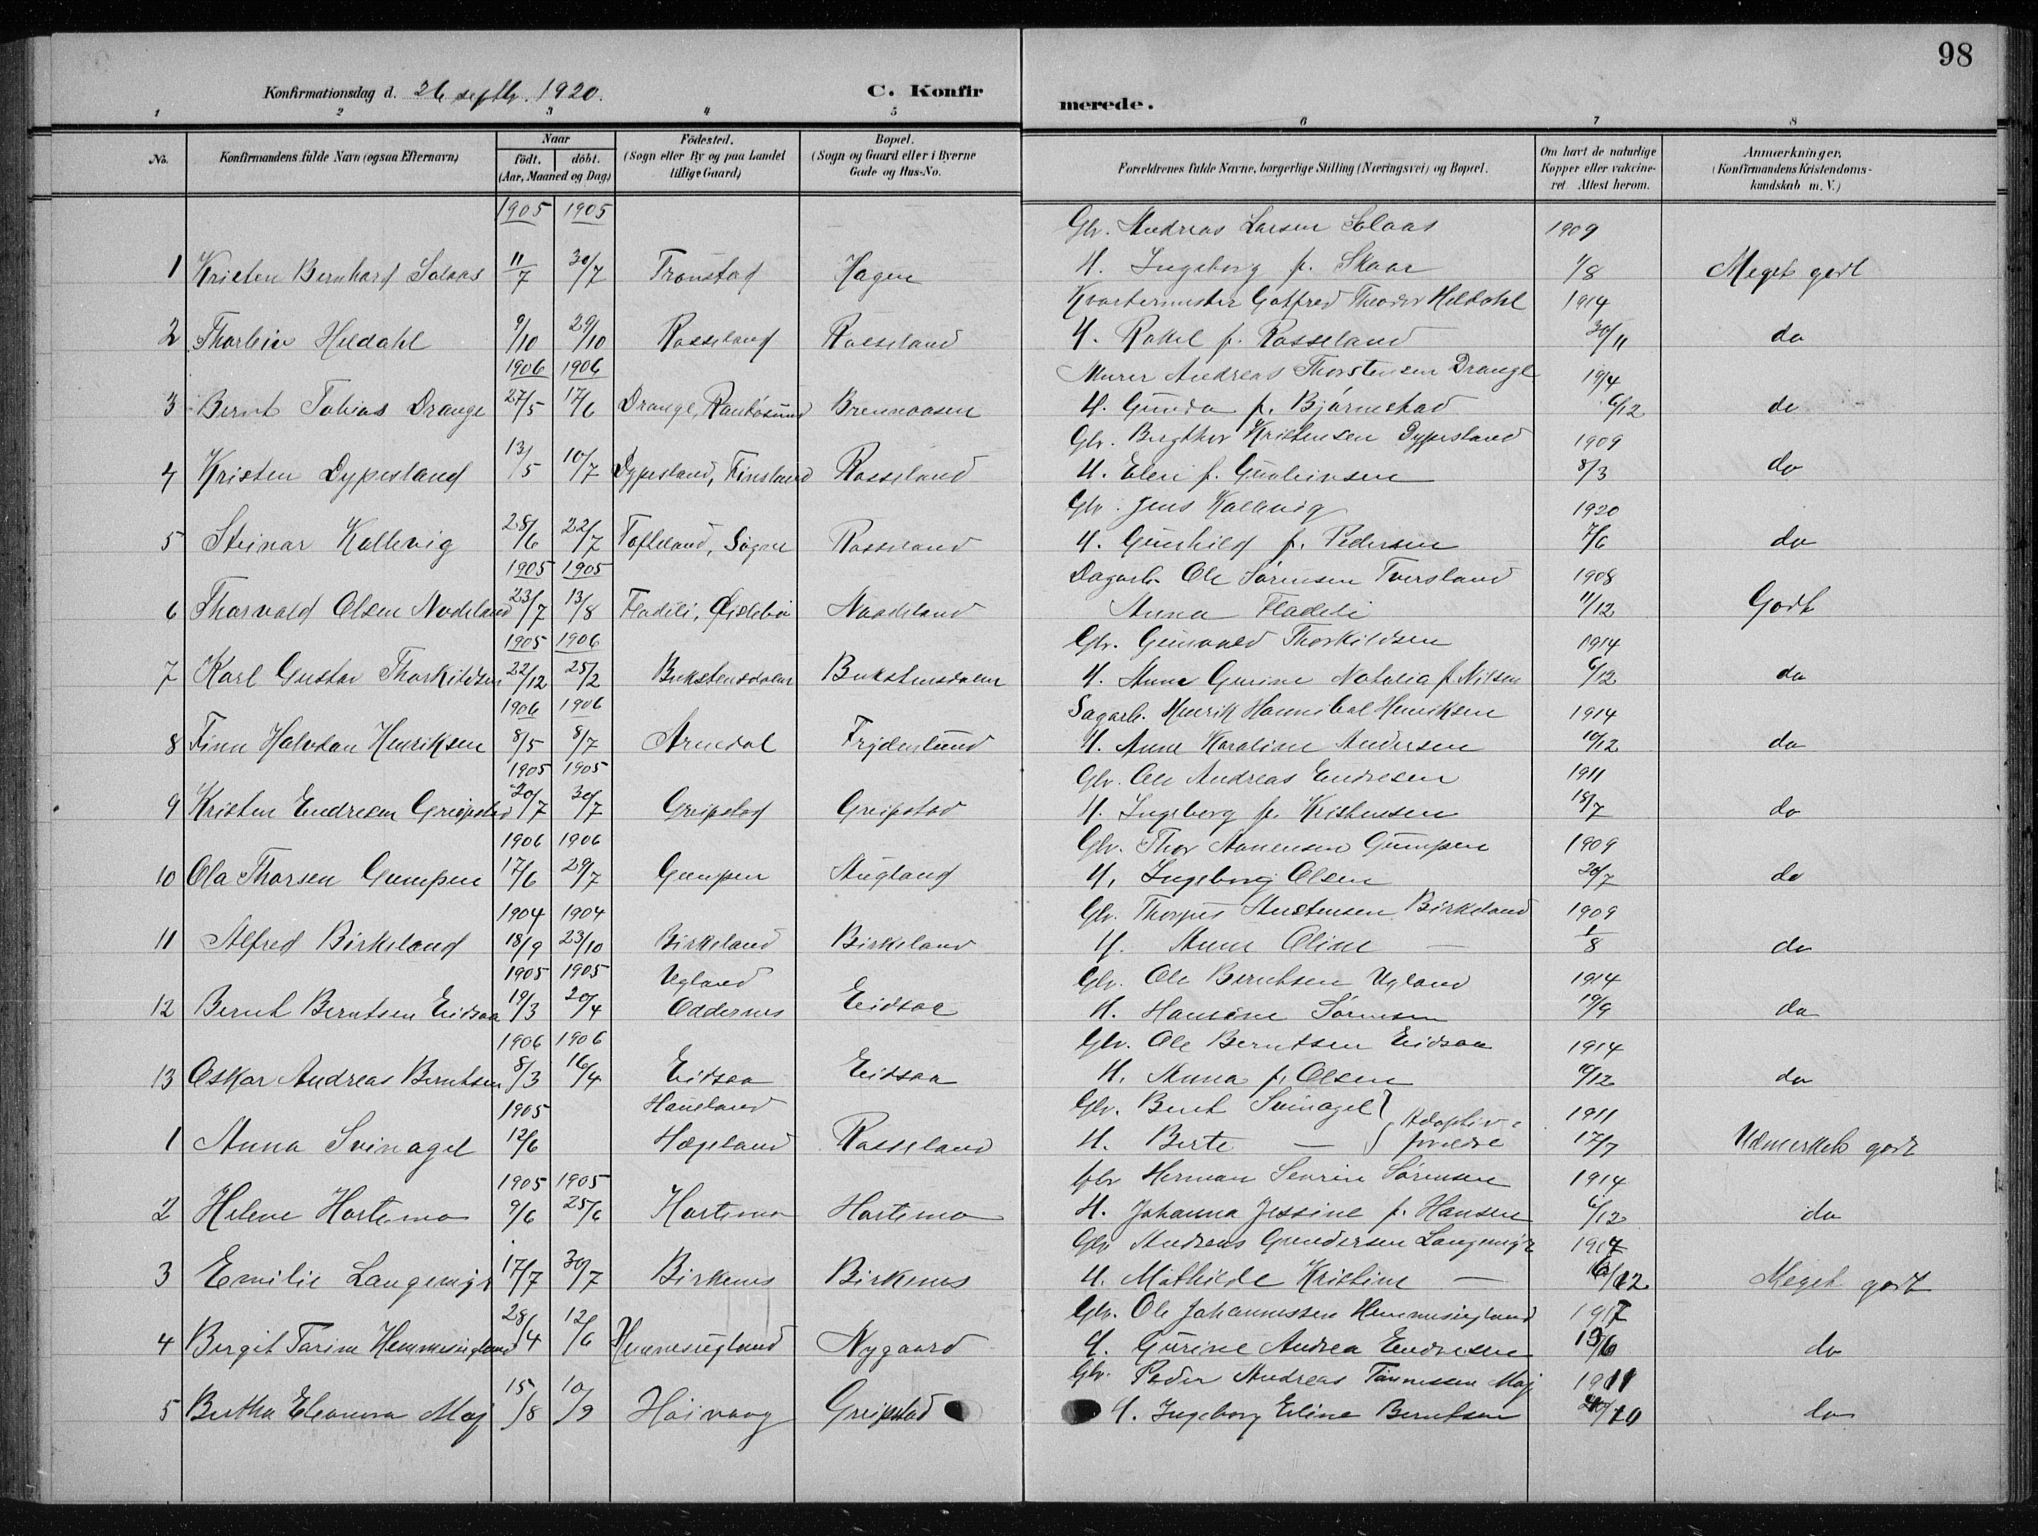 98
Konfirmationsdag d. 26 septbr. 1920.
C. Konfirmerede.
1 2 3 4 5 6 7 8
No. Konfirmandens fulde Navn (ogsaa Efternavn) Naar født. døbt. (Aar, Maaned og Dag) Fødested. (Sogn eller By og paa Landet tillige Gaard) Bopæl. (Sogn og Gaard eller i Byerne Gade og Hus-No. Forældrenes fulde Navne, borgerlige Stilling (Næringsvei) og Bopæl. Om havt de naturlige Kopper eller vakcineret Attest herom. Anmærkninger. (Konfirmandens Kristendomskundskab m. V.)
1905 1905 Gbr. Andreas Larsen Solaas 1909
1 Kristen Bernhard Solaas 11/7 30/7 Tronstad Hagen H. Ingeborg f. Skaar 1/8 Meget godt
Kvartermester Gotfred Theodor Heldahl 1914
2 Thorbein Heldahl 9/10 29/10 Rosseland Rosseland H. Rakel f. Rosseland 30/11 do
1906 1906 Murer Andreas Thorstensen Drange 1914
3 Bernt Tobias Drange 27/5 17/6 Drange, Randøsund Brennaasen H. Gunda f. Bjørnestad 6/12 do
Gbr. Bergthor Kristensen Dypesland 1909
4 Kristen Dypesland 13/5 10/7 Dypesland, Finsland Rosseland H. Elen f. Gunleiksen 8/3 do
Gbr. Jens Kallevig 1920
5 Steinar Kallevig 28/6 22/7 Tofteland, Søgne Rosseland H. Gunhild f. Pedersen 7/6 do
1905 1905 Dagarb. Ole Sørensen Tversland 1908
6 Thorvald Olsen Nodeland 23/7 13/8 Fladeli, Øislebø Nodeland Anna Fladeli 11/12 Godt
1905 1906 Gbr. Gunvald Thorkildsen 1914
7 Karl Gustav Thorkildsen 22/12 25/2 Bukstensdalen Bukstensdalen H. Anne Gurine Natalia f. Nilsen 6/12 do
1906 1906 Sagarb. Henrik Hannibal Henriksen 1914
8 Finn Halvdan Henriksen 8/5 8/7 Arendal Frydenlund H. Anne Karoline Andersen 10/12 do
1905 1905 Gbr. Ole Andreas Endresen 1911
9 Kristen Endresen Greipstad 20/7 30/7 Greipstad Greipstad H. Ingeborg f. Kristensen 18/7 do
1906 1906 Gbr. Thor Aanensen Gumpen 1909
10 Ola Thorsen Gumpen 17/6 29/7 Gumpen Augland H. Ingeborg Olsen 30/7 do
1904 1904 Gbr. Thorjus Austensen Birkeland 1909
11 Alfred Birkeland 18/9 23/10 Birkeland Birkeland H. Anne Oline — 1/8 do
1905 1905 Ugland Gbr. Ole Berntsen Ugland 1914
12 Bernt Berntsen Eidsaa 19/3 20/4 Oddernes Eidsaa H. Hansine Sørensen 19/9 do
1906 1906 Gbr. Ole Berntsen Eidsaa 1914
13 Oskar Andreas Berntsen 8/3 16/4 Eidsaa Eidsaa H. Anna f. Olsen 6/12 do
1905 Haueland Gbr. Bent Svinagel } Adoptiv- 1911
1 Anna Svinagel 12/6 Hægeland Rosseland H. Berte — } forældre 17/7 Udmerket godt
1905 1905 Gbr Herman Severin Sørensen 1914
2 Helene Hortemo 9/6 25/6 Hortemo Hortemo H. Johanna Jessine f. Hansen 6/12 do
Gbr Andreas Gundersen Langemyr 1914
3 Emilie Langemyr 17/7 30/7 Birkenes Birkenes H. Mathilde Kristine — 6/12 Meget godt
Gbr. Ole Johannessen Hemmesigland 1917
4 Bergit Tarine Hemmesigland 28/4 12/6 Hemmesigland Nygaard H. Gurine Andrea Endresen 13/6 do
Gbr. Peder Andreas Tønnessen Moj 1911
5 Bertha Eleonora Moj 15/8 10/9 Høivaag Greipstad H. Ingeborg Eline Berntsen 20/10 do